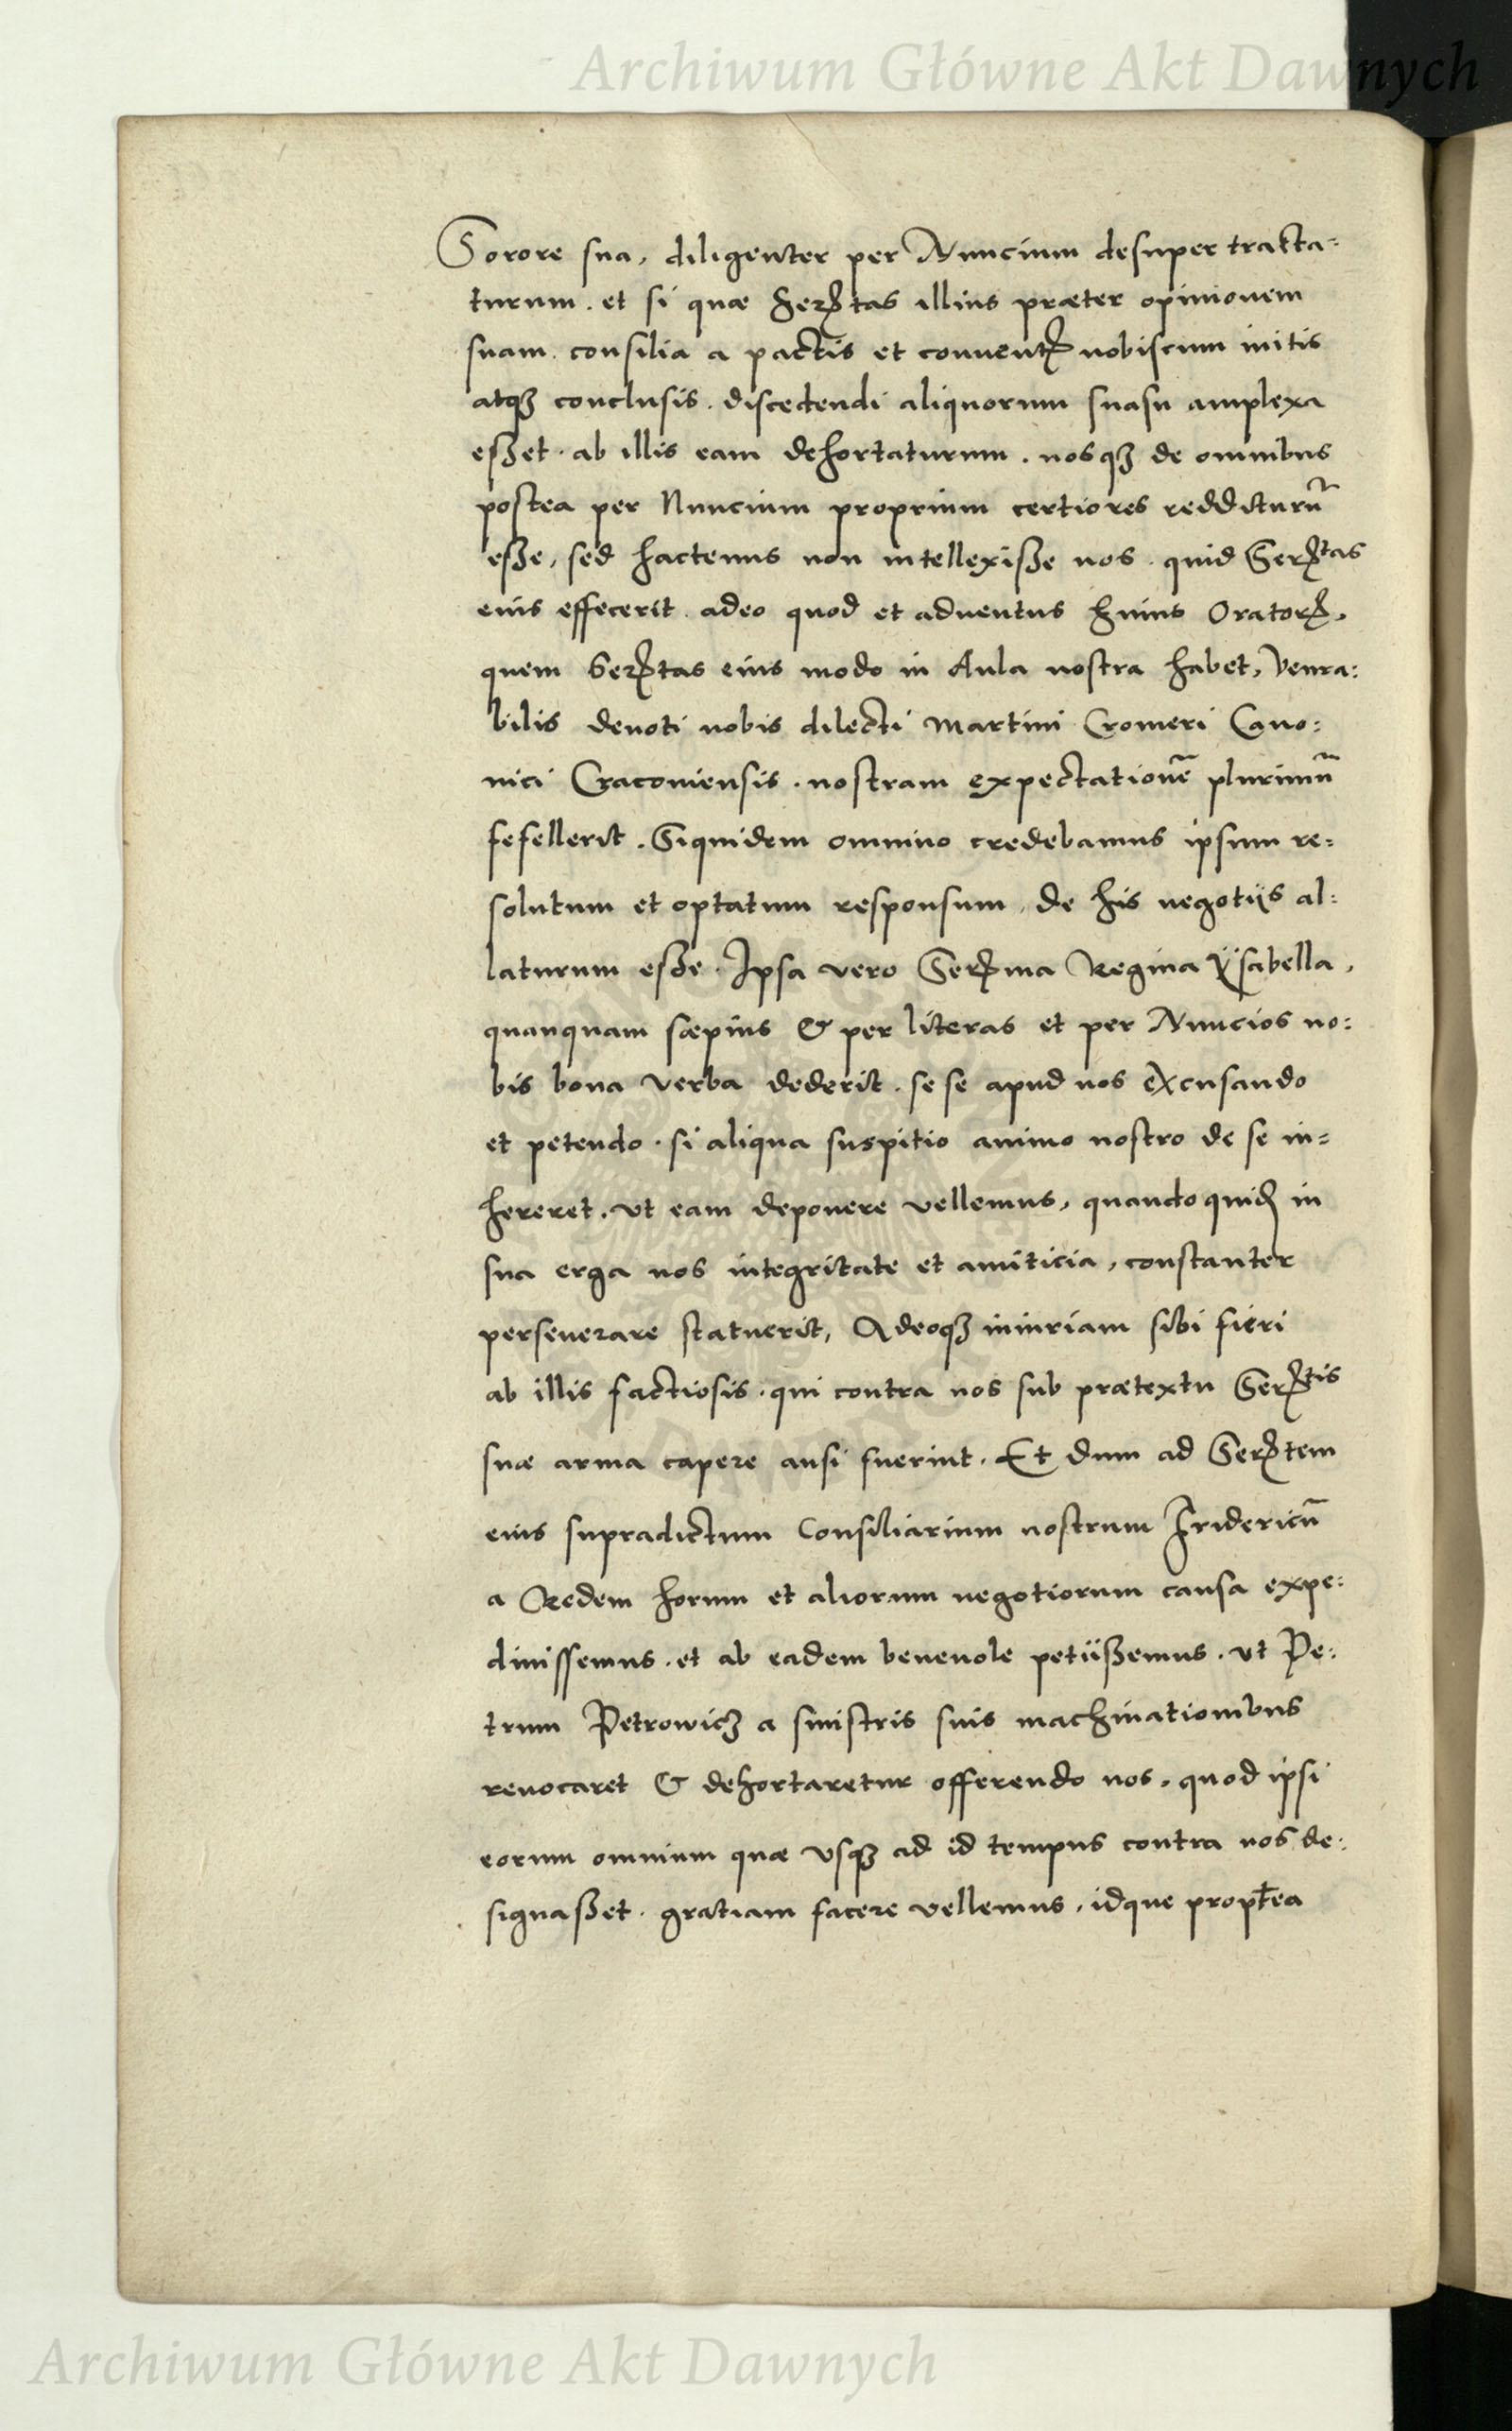 Archiwum Główne Akt Dawnych
Sorore sua, diligenter per Nuncium desuper tracta-
turum. et si quæ Serꝭtas illius præter opinionem
suam. consilia a pactis et conuentꝭ nobiscum initis
atqꝫ conclusis. discedendi aliquorum suasu amplexa
eßet. ab illis eam dehortaturum. nosqꝫ de omnibus
postea per Nuncium proprium certiores redditurũ
eße, sed hactenus non intellexiße nos. quid Serꝭtas
eius effecerit. adeo quod et aduentus huius Oratorꝭ,
quem Serꝭtas eius modo in Aula nostra habet, Venra:
bilis deuoti nobis dilecti Martini Cromeri Cano:
nici Cracouiensis. nostram expectationẽ plurimũ
fefellerit. Siquidem omnino credebamus ipsum re:
solutum et optatum responsum, de his negotijs al:
laturum eße. Ipsa vero Serꝭma Regina Ÿsabella,
quanquam sæpius & per literas et per Nuncios no:
bis bona verba dederit. sese apud nos excusando
et petendo. si aliqua suspitio animo nostro de se in=
hereret. vt eam deponere vellemus, quandoquidẽ in
sua erga nos integritate et amiticia, constanter
perseuerare statuerit, Adeoqꝫ iniuriam sibi fieri
ab illis factiosis. qui contra nos sub prætextu Serꝭtis
suæ arma capere ausi fuerint. Et dum ad Serꝭtem
eius supradictum Consiliarium nostrum Fridericũ
a Redern horum et aliorum negotiorum causa expe:
diuissemus. et ab eadem beneuole petijßemus. vt Pe:
trum Petrowicz a sinistris suis machinationibus
reuocaret & dehortaretur offerendo nos, quod ipsi
eorum omnium quæ vsqꝫ ad id tempus contra nos de:
signaßet. gratiam facere vellemus, idque propt̃ea
Archiwum Główne Akt Dawnych